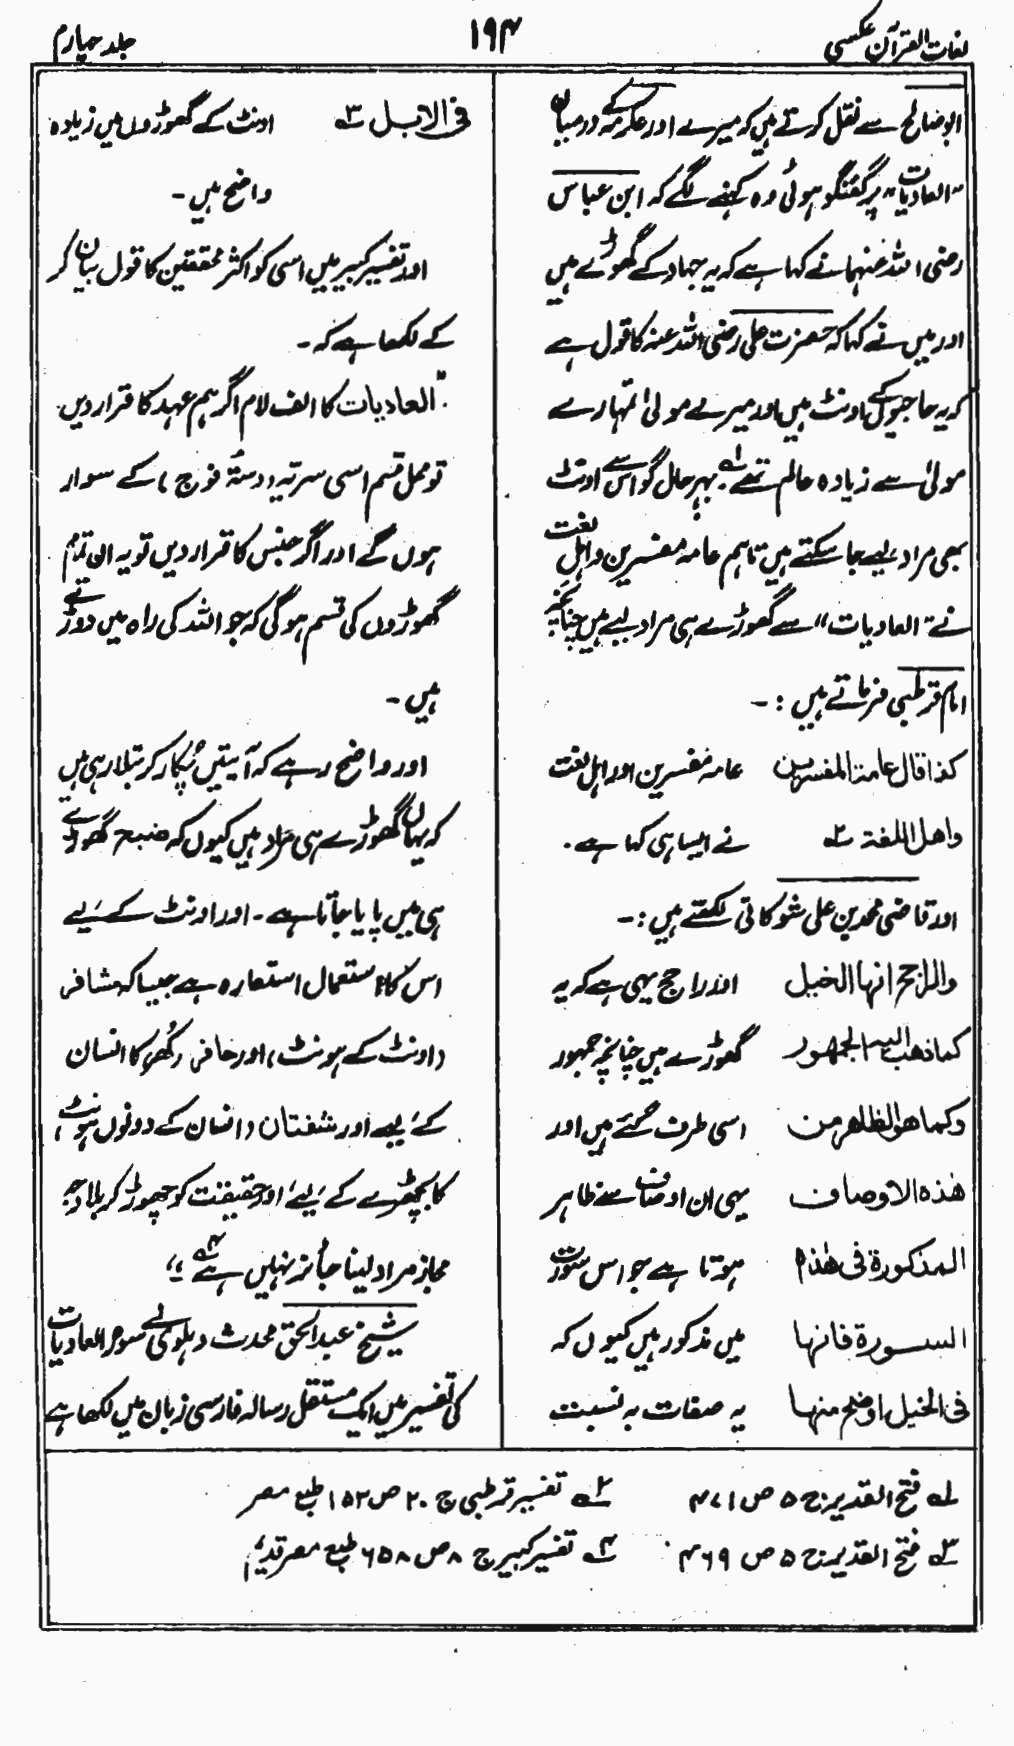 لغات القرآن عکسی
۱۹۴
جلد چہارم
ابو صالح سے نقل کرتے ہیں کہ میرے اور عکرمہ کے درمیان
"العادیات" پر گفتگو ہوئی وہ کہنے لگے کہ ابن عباس
رضی اللہ عنہما نے کہا ہے کہ یہ جہاد کے گھوڑے ہیں
اور میں نے کہا کہ حضرت علی رضی اللہ عنہ کا قول ہے
کہ یہ حاجیوں کے اونٹ ہیں اور میرے مولیٰ تمہارے
مولیٰ سے زیادہ عالم تھے ۱ بہر حال گو اس سے اونٹ
بھی مراد لیے جا سکتے ہیں تاہم عامہ مفسرین و اہل لغت
نے "العادیات" سے گھوڑے ہی مراد لیے ہیں چنانچہ
امام قرطبی فرماتے ہیں :۔
کذا قال عامۃ المفسرین عامہ مفسرین اور اہل لغت
واھل اللغۃ ۲ نے ایسا ہی کہا ہے ۔
اور قاضی محمد بن علی شوکانی لکھتے ہیں :۔
والراجح انھا الخیل اور راجح یہی ہے کہ یہ
کما ذھب الیہ الجمھور گھوڑے ہیں چنانچہ جمہور
وکما ھو الظاھر من اسی طرف گئے ہیں اور
ھذہ الاوصاف یہی ان اوصاف سے ظاہر
المذکورۃ فی ھذہ ہوتا ہے جو اس سورت
السورۃ فانھا میں مذکور ہیں کیوں کہ
فی الخیل اوضح منھا یہ صفات بہ نسبت
فی الابل ۳ اونٹ کے گھوڑوں میں زیادہ
واضح ہیں ۔
اور تفسیر کبیر میں اسی کو اکثر محققین کا قول بیان کر
کے لکھا ہے کہ ۔
"العادیات کا الف لام اگر ہم عہد کا قرار دیں
تو محل قسم اسی سریہ (دستۂ فوج) کے سوار
ہوں گے اور اگر جنس کا قرار دیں تو یہ ان تمام
گھوڑوں کی قسم ہوگی کہ جو اللہ کی راہ میں دوڑتے
ہیں ۔
اور واضح رہے کہ آیتیں پُکار کر بتلا رہی ہیں
کہ یہاں گھوڑے ہی مراد ہیں کیوں کہ ضبح گھوڑے
ہی میں پایا جاتا ہے ۔ اور اونٹ کے لیے
اس کا استعمال استعارہ ہے جیسا کہ مشافر
(اونٹ کے ہونٹ) اور حافر (کُھر) کا انسان
کے لیے اور شفتان (انسان کے دونوں ہونٹ)
کا بچھڑے کے لیے، اور حقیقت کو چھوڑ کر بلا وجہ
مجاز مراد لینا جائز نہیں ہے ۴"
شیخ عبدالحق محدث دہلوی نے سورہ العادیات
کی تفسیر میں ایک مستقل رسالہ فارسی زبان میں لکھا ہے
۱ فتح القدیر ج ۵ ص ۴۷۱ ۲ تفسیر قرطبی ج ۲۰ ص ۱۵۲ طبع مصر
۳ فتح القدیر ج ۵ ص ۴۶۹ ۴ تفسیر کبیر ج ۸ ص ۶۵۸ طبع مصر قدیم